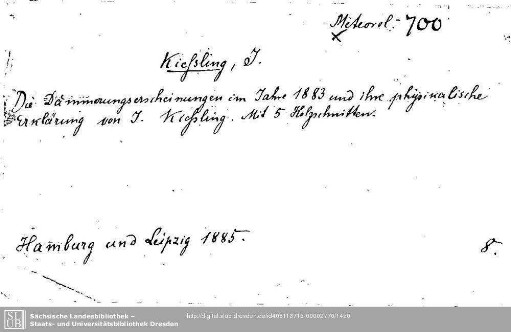 Meteorol. 700
Kießling, J.
Die Dämmerungserscheinungen im Jahre 1883 und ihre physikalische
Erklärung von J. Kießling. Mit 5 Holzschnitten.
Hamburg und Leipzig 1885.
8.
SLUB
Sächsische Landesbibliothek –
Staats- und Universitätsbibliothek Dresden